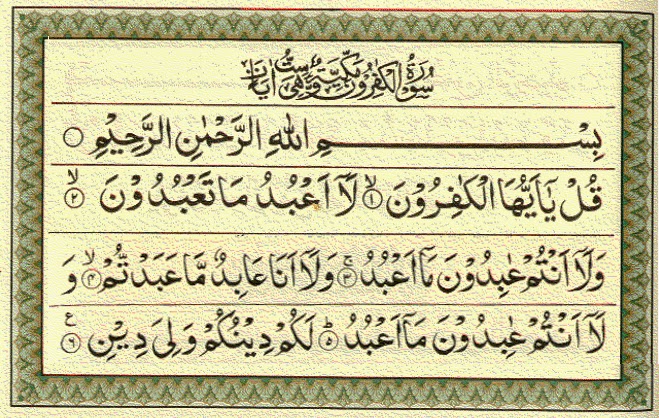 سُوْرَةُ الْكٰفِرُوْنَ مَكِّيَّةٌ وَّهِىَ سِتُّ اٰيَاتٍ
بِسْمِ اللّٰهِ الرَّحْمٰنِ الرَّحِيْمِ ۝
قُلْ يٰۤاَيُّهَا الْكٰفِرُوْنَ ۙ﴿۱﴾ لَاۤ اَعْبُدُ مَا تَعْبُدُوْنَ ۙ﴿۲﴾
وَلَاۤ اَنْتُمْ عٰبِدُوْنَ مَاۤ اَعْبُدُ ۚ﴿۳﴾ وَلَاۤ اَنَا عَابِدٌ مَّا عَبَدْتُّمْ ۙ﴿۴﴾ وَ
لَاۤ اَنْتُمْ عٰبِدُوْنَ مَاۤ اَعْبُدُ ؕ﴿۵﴾ لَكُمْ دِيْنُكُمْ وَلِىَ دِيْنِ ﴿۶﴾ ع